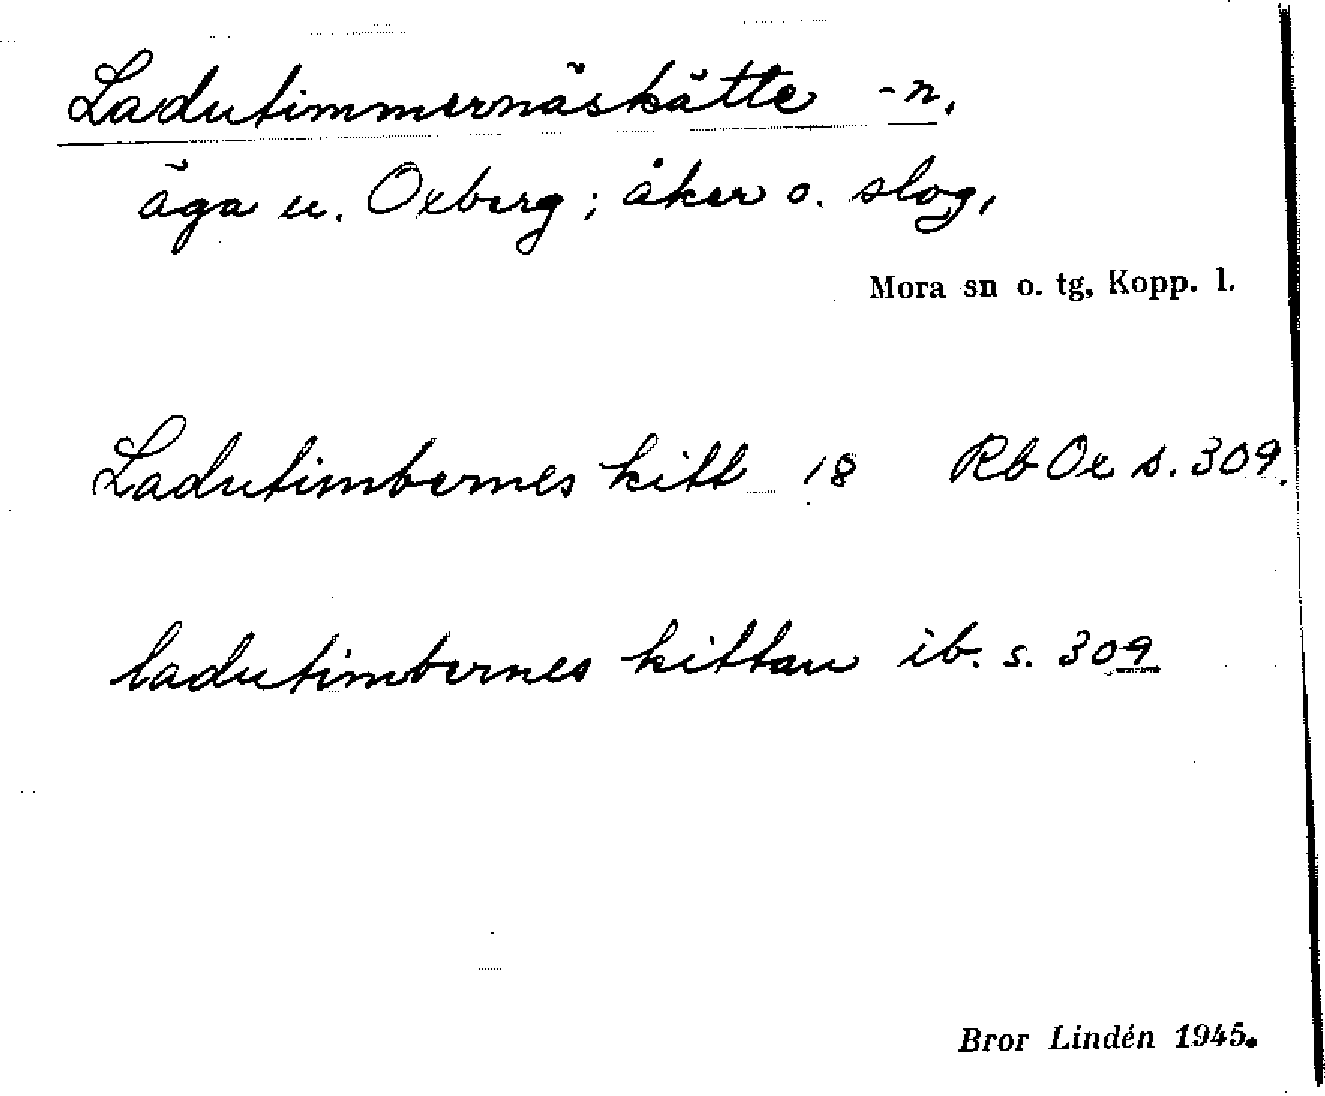 Ladutimmernäskätte -n.
äga u. Oxberg; åker o. slog,
Mora sn o. tg, Kopp. l.
Ladutimbernes kitt 18 Rb Ox s. 309.
ladutimbernes kittan ib. s. 309
Bror Lindén 1945.